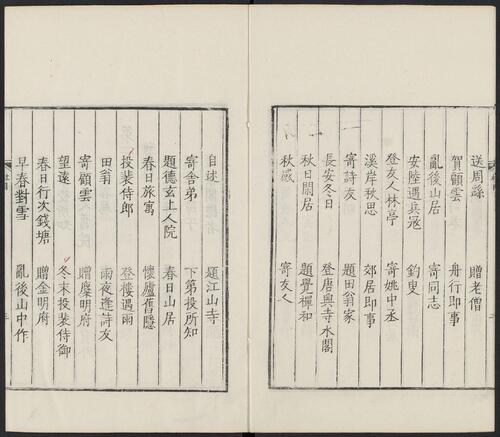 送周繇　贈老僧
賀顧雲　舟行即事
亂後山居　寄同志
安陸遇兵寇　釣叟
登友人林亭　寄姚中丞
溪岸秋思　郊居即事
寄詩友　題田翁家
長安冬日　登唐興寺水閣
秋日閒居　題覺禪和
秋巖　寄友人
自述　題江山寺
寄舍弟　下第投所知
題德玄上人院　春日山居
春日旅寓　懷廬舊隱
投裴侍郎　登樓遇雨
田翁　雨夜逢詩友
寄顧雲　贈麋明府
望遠　冬末投裴侍御
春日行次錢塘　贈金明府
早春對雪　亂後山中作